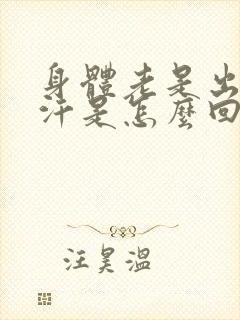 身體老是出
汗是怎麼回
汪昊溫